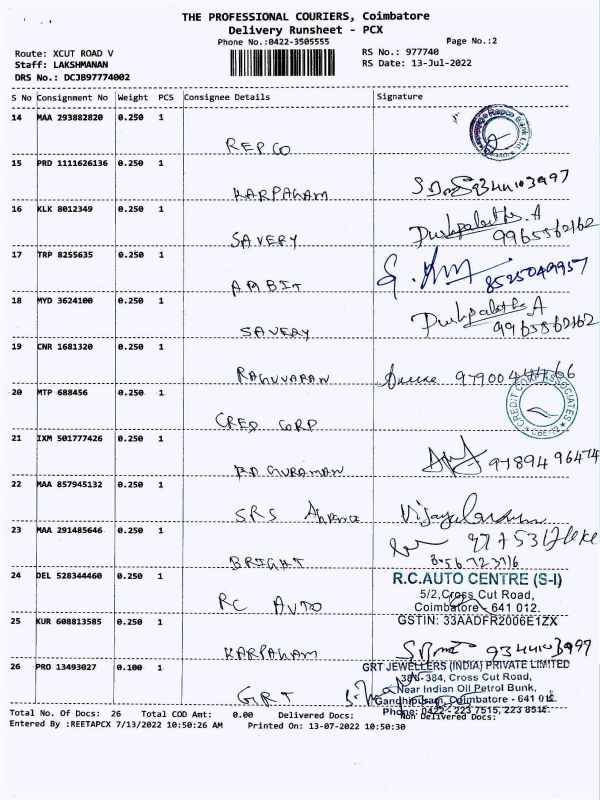 THE PROFESSIONAL COURIERS, Coimbatore
Delivery Runsheet - PCX
Phone No.:0422-3505555
Page No.:2
Route: XCUT ROAD V
RS No.: 977740
Staff: LAKSHMANAN
RS Date: 13-Jul-2022
DRS No.: DCJB97774002
S No Consignment No Weight PCS Consignee Details Signature
14 MAA 293882820 0.250 1
REPCO
15 PRD 1111626136 0.250 1
KARPAGAM 9344103997
16 KLK 8012349 0.250 1
SAVERY Pushpalatha. A
9965562162
17 TRP 8255635 0.250 1
AMBIT 8525049957
18 MYD 3624100 0.250 1
SAVERY Pushpalatha A
9965562162
19 CNR 1681320 0.250 1
RAGUVARAN
20 MTP 688456 0.250 1
CRED CORP
CREDIT CORP ASSOCIATES
CBE-12
21 IXM 501777426 0.250 1
9789496474
22 MAA 857945132 0.250 1
SRS
23 MAA 291485646 0.250 1
BRIGHT
24 DEL 528344460 0.250 1
RC AUTO
R.C.AUTO CENTRE (S-I)
5/2,Cross Cut Road,
Coimbatore - 641 012.
GSTIN: 33AADFR2006E1ZX
25 KUR 608813585 0.250 1
KARPAGAM 9344103997
26 PRO 13493027 0.100 1
GRT
GRT JEWELLERS (INDIA) PRIVATE LIMITED
384, Cross Cut Road,
Near Indian Oil Petrol Bunk,
Gandhipuram, Coimbatore - 641 012.
Phone: 0422 - 223 7515, 223 8515.
Total No. Of Docs: 26 Total COD Amt: 0.00 Delivered Docs: Non Delivered Docs:
Entered By :REETAPCX 7/13/2022 10:50:26 AM Printed On: 13-07-2022 10:50:30